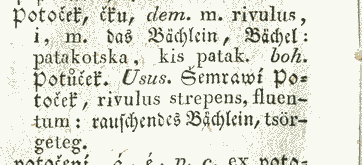 Potoček, čku, dem. m. rivulus,
i, m. das Bächlein, Bächel:
patakotska, kis patak. boh.
Potůček. Usus. Šemrawí Po-
toček, rivulus strepens, fluen-
tum: rauschendes Bächlein, tsör-
geteg.
potočení, é, n. c. ex poto-